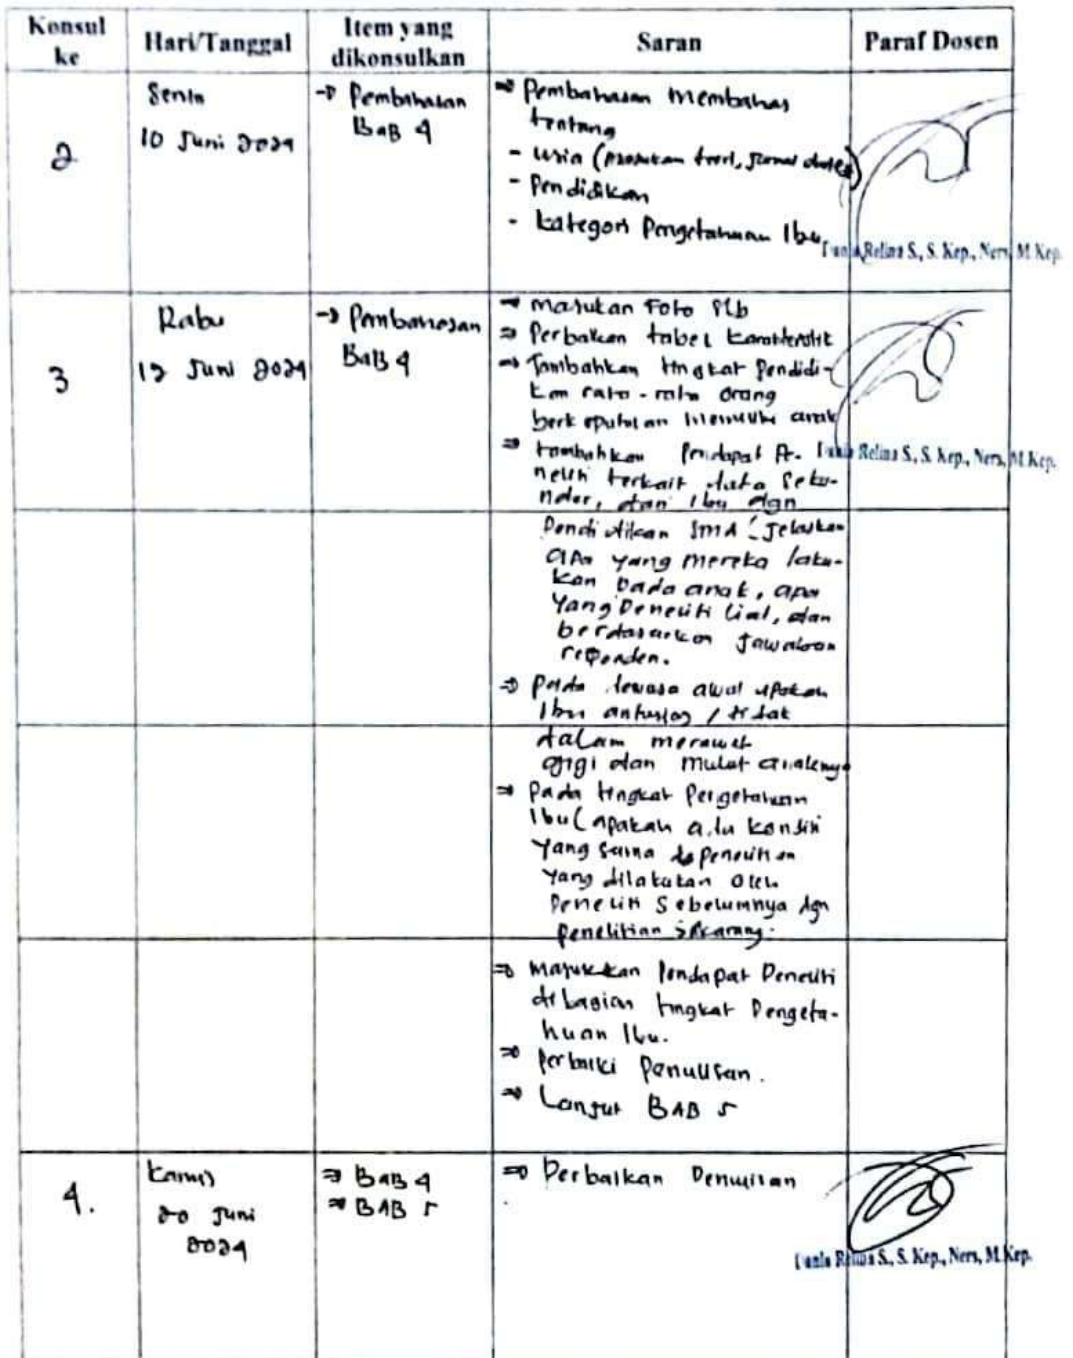 Konsul ke
Hari/Tanggal
Item yang dikonsulkan
Saran
Paraf Dosen
2
Senin
10 Juni 2024
→ Pembahasan
BAB 4
⇒ Pembahasan membahas
tentang
- Usia (masukan teori, jurnal
- Pendidikan
- Kategori Pengetahuan Ibu.
Relina S., S. Kep., Ners, M.Kep.
3
Rabu
12 Juni 2024
→ Pembahasan
BAB 4
⇒ Masukan Foto SLB
⇒ Perbaikan tabel karakteristik
⇒ Tambahkan tingkat Pendidi-
kan rata-rata orang
berkeputusan memiliki anak
⇒ tambahkan Pendapat Pe-
neliti terkait data seku-
nder, dan Ibu dgn
Relina S., S. Kep., Ners, M.Kep.
Pendidikan SMA (Jelaskan
apa yang mereka laku-
kan pada anak, apa
yang peneliti lihat, dan
berdasarkan jawaban
responden.
⇒ Pada dewasa awal apakah
Ibu antusias / tidak
dalam merawat
gigi dan mulut anaknya
⇒ Pada tingkat Pengetahuan
Ibu (apakah ada kondisi
yang sama penelitian
yang dilakukan oleh
peneliti sebelumnya dgn
penelitian sekarang.
⇒ Masukkan Pendapat Peneliti
di bagian tingkat Pengeta-
huan Ibu.
⇒ Perbaiki Penulisan.
⇒ Lanjut BAB 5
4.
Kamis
20 Juni
2024
⇒ BAB 4
⇒ BAB 5
⇒ Perbaikan Penulisan
Relina S., S. Kep., Ners, M.Kep.